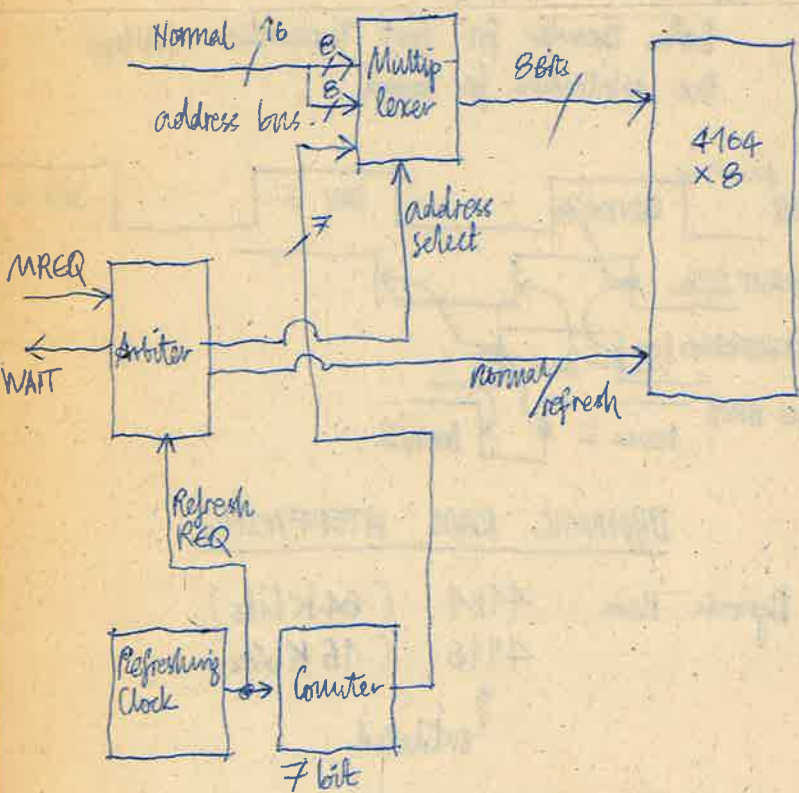 Normal 16
address bus.
8
8
Multip
lexer
8Bits
4164
x 8
7
address
select
MREQ
WAIT
Arbiter
Normal/
refresh
Refresh
REQ
Refreshing
Clock
Counter
7 bit